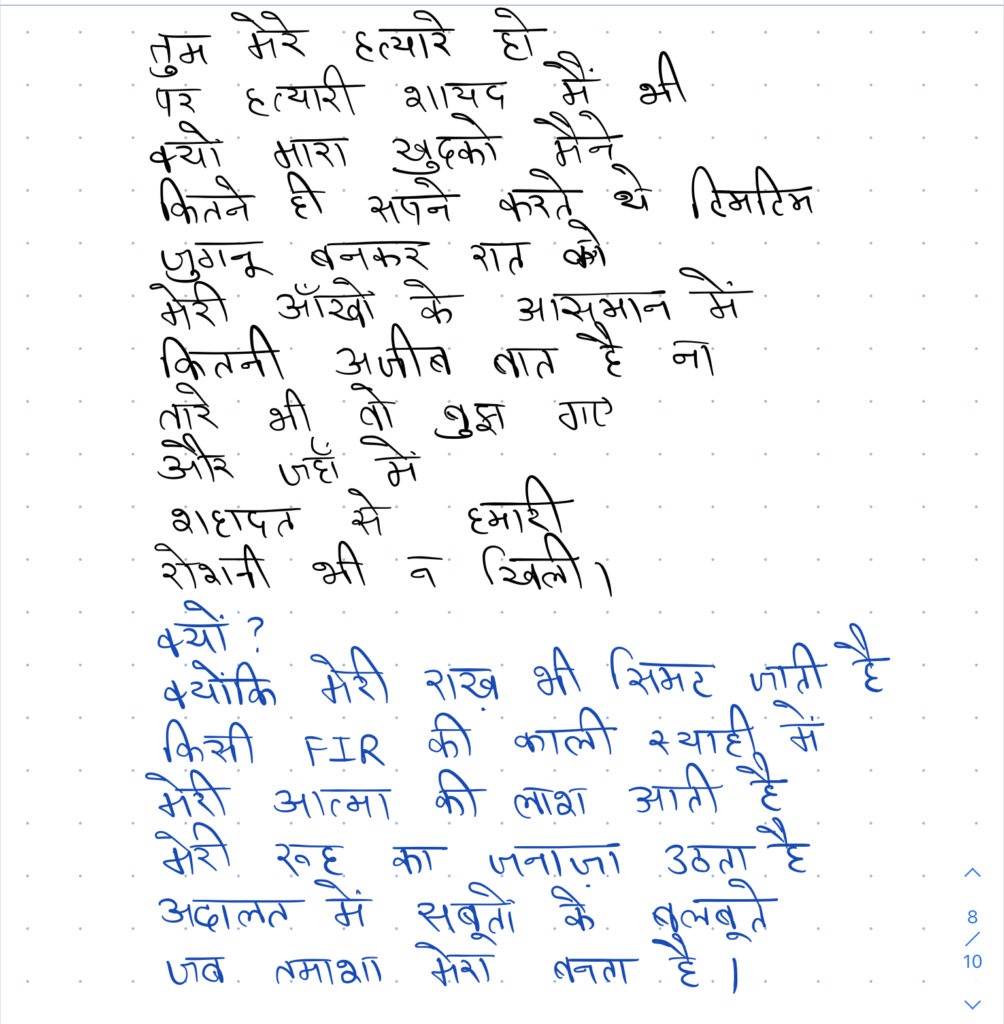 तुम मेरे हत्यारे हो
पर हत्यारी शायद मैं भी
क्यों मारा खुदको मैंने
कितने ही सपने करते थे टिमटिम
जुगनू बनकर रात को
मेरी आँखों के आसमान में
कितनी अजीब बात है ना
तारे भी तो बुझ गए
और जहाँ में
शहादत से हमारी
रोशनी भी न खिली।
क्यों?
क्योंकि मेरी राख़ भी सिमट जाती है
किसी FIR की काली स्याही में
मेरी आत्मा की लाश आती है
मेरी रूह का जनाजा़ उठता है
अदालत में सबूतों के बुलबूते
जब तमाशा मेरा बनता है।
8
/
10